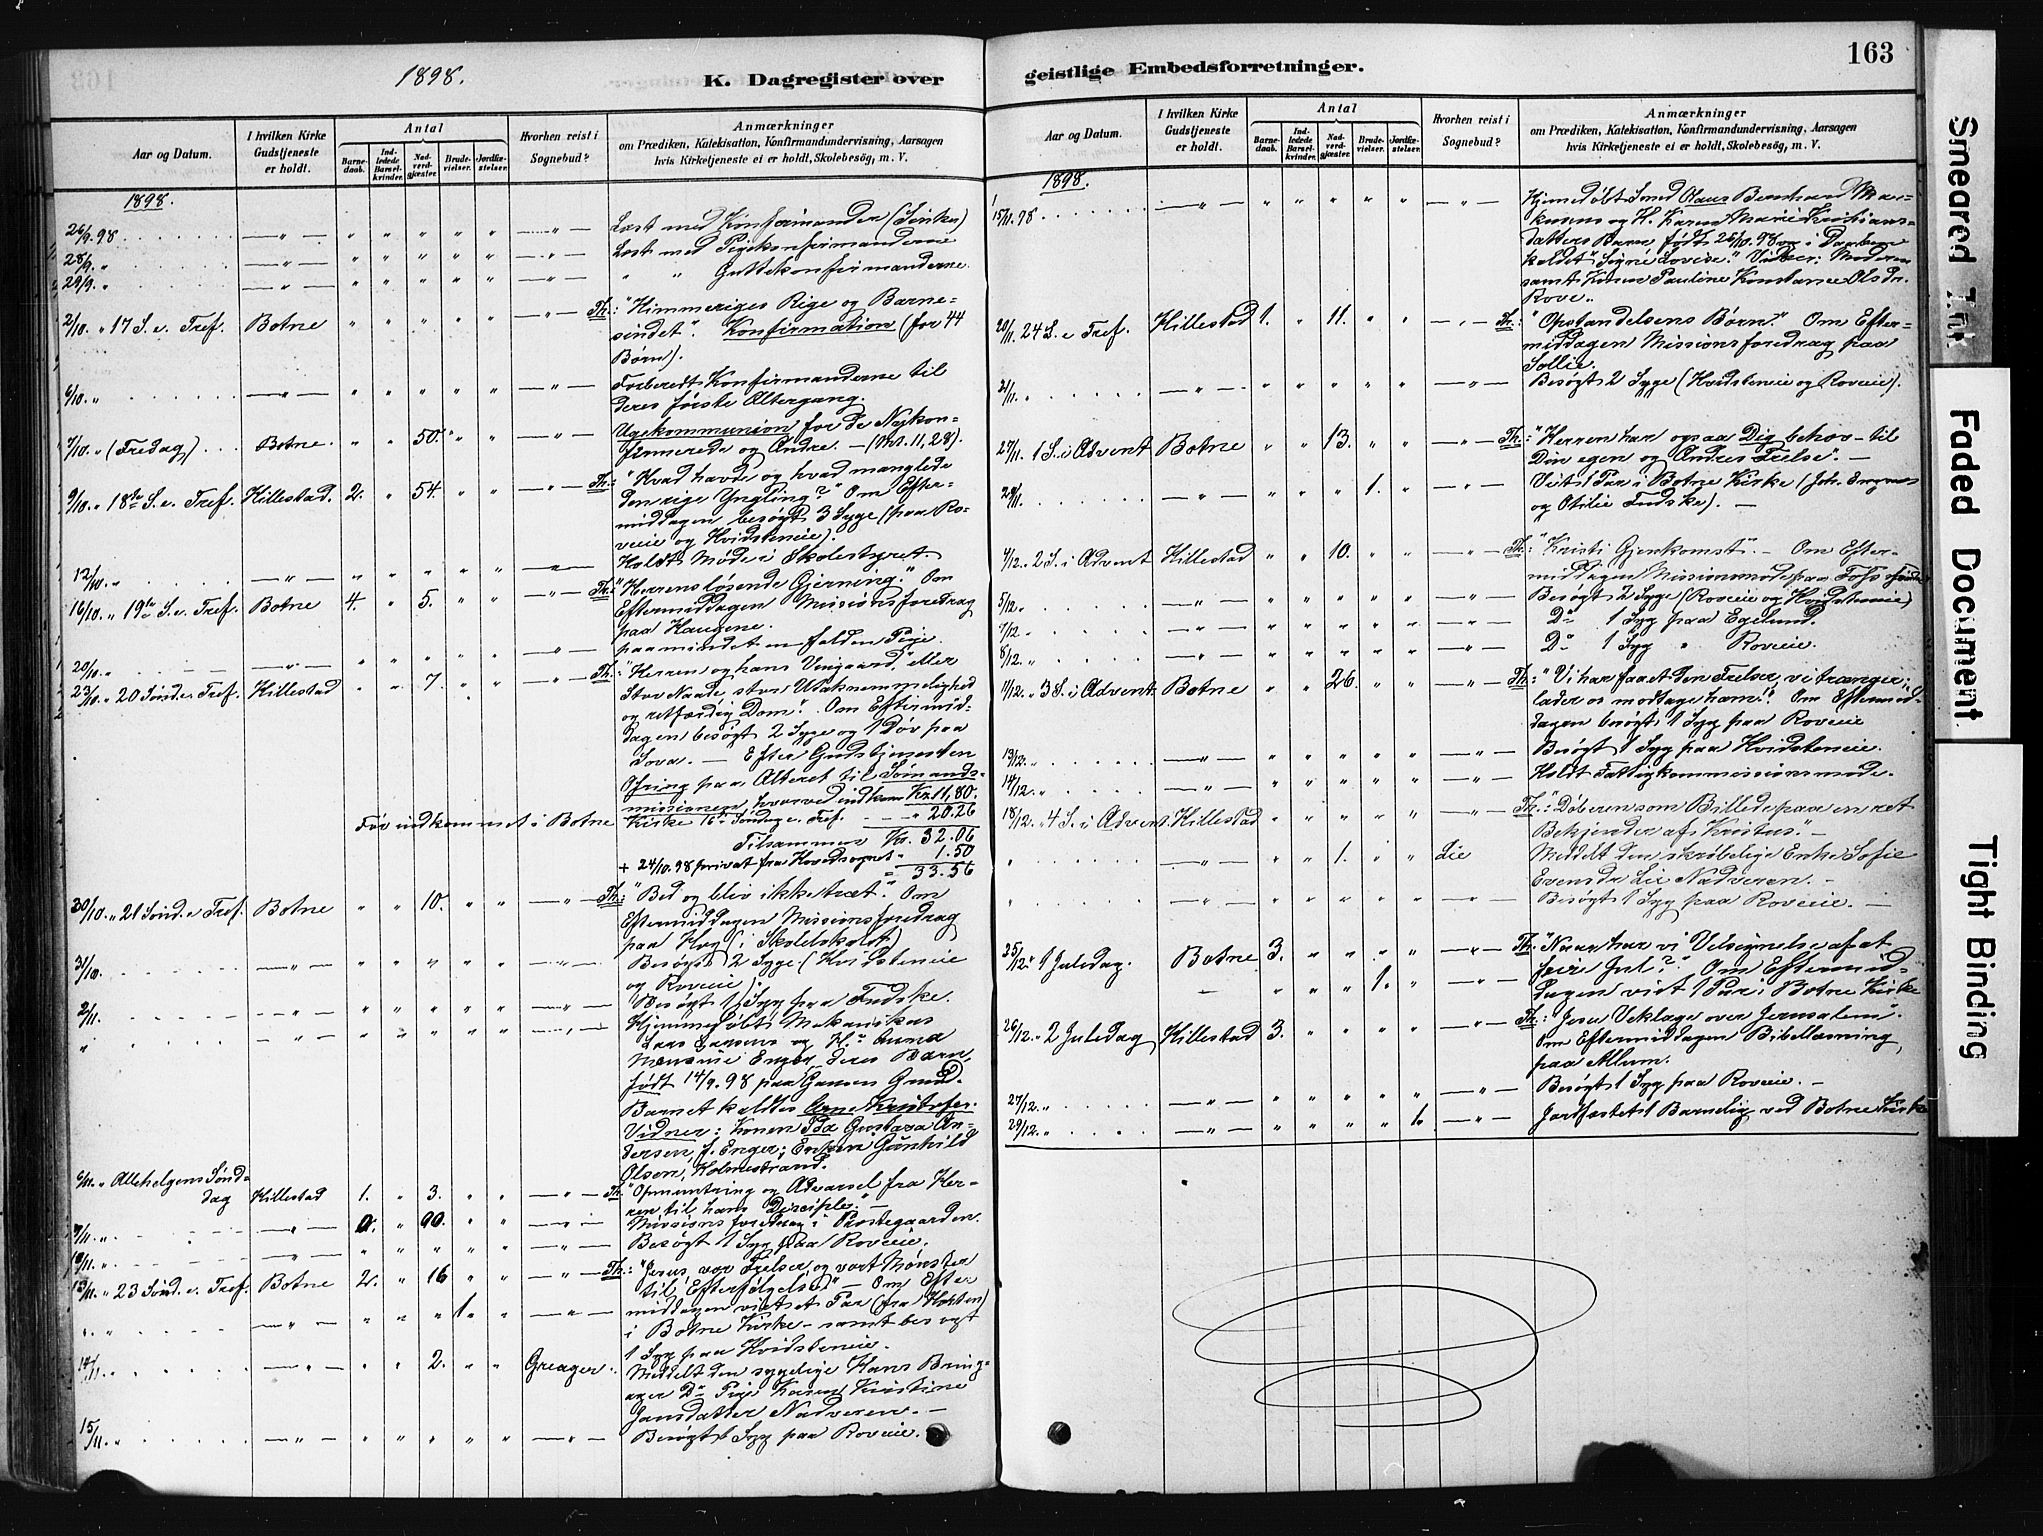 1898.
K. Dagregister over
Aar og Datum.
I hvilken Kirke Gudstjeneste er holdt.
Antal
Barnedaab.
Indledede Barselkvinder.
Nadverdgjæster.
Brudevielser.
Jordfæstelser.
Hvorhen reist i Sognebud?
Anmærkninger
om Prædiken, Katekisation, Konfirmandundervisning, Aarsagen
hvis Kirketjeneste ei er holdt, Skolebesøg, m. V.
1898.
26/9. 98 — " — " " " " " — " — Læst med Konfirmander
28/9. " — " — " " " " " — " — Læst med Pigekonfirmanderne
29/9. " — " — " " " " " — " — " " Guttekonfirmanderne.
2/10. " 17 S. e. Tref. Botne " " " " " — " — Th.: "Himmeriges Rige og Barne-
sindet". Konfirmation (for 44
Børn).
6/10. " — " — " " " " " — " — Forberedt Konfirmanderne til
deres første Altergang.
7/10. " (Fredag) Botne. " " 50. " " — " — Ugekommunion for de Nykon-
firmerede og Andre. — (Mt. 11,28).
9/10. " 18de S. e. Tref. Hillestad. 2. " 54. " " — " — Th.: "Hvad havde og hvad manglede
den rige Yngling?" Om Efter-
middagen besøgt 3 Syge (paa Ro-
veie og Hvidsteneie).
12/10. " — " — " " " " " — " — Holdt Møde i Skolestyret.
16/10. " 19de S. e. Tref. Botne 4. " 5. " " — " — Th.: "Herrens løsende Gjerning." Om
Eftermiddagen Missionsforedrag
paa Haugene.
20/10. " — " — " " " " " — " — paamindet en falden Pige.
23/10. " 20 Sønd. e. Tref. Hillestad " " 7. " " — " — Th.: "Herren og hans Vingaard." Eller
Stor Naade, stor Utaknemmelighed
og retfærdig Dom". Om Eftermid-
dagen besøgt 2 Syge og 1 Døv paa
— Efter Gudstjenesten
Ofring paa Alteret til Sømands-
missionen, hvorved indkom Kr. 11,80.
Før indkommet i Botne Kirke 16de Søndag e. Tref. — — " 20.26
Tilsammen Kr. 32.06
+ 24/10. 98 privat fra Hovedsognet " 1.50
= 33.56
30/10. " 21 Sønd. e. Tref. Botne " " 10. " " — " — Th.: "Bed og bliv ikke træt". Om
Eftermiddagen Missionsforedrag
paa (i Skolelokalet)
31/10. — " — " " " " " — " — Besøgt 2 Syge (Hvidsteneie
og Roveie).
2/11. — " — " " " " " — " — Besøgt 1 Syg paa Fudske.
" — " — " " " " " — " — Hjemmedøbt Mekanikus
Lars og H. Anna
Enger deres Barn,
født 14/9. 98 paa
Barnet kaldtes Arne Kristofer.
Vidner: Konen Ida Gustava An-
dersen, f. Enger; Enken Gunhild
Olsen, Holmestrand.
6/11. " Allehelgens Sønd-
dag Hillestad 1. " 3. " " — " — Th.: "Opmuntring og Advarsel fra Her-
ren til hans Disciple." —
7/11. " — " — " 90. " " — " — Missionsforedrag i Præstegaarden.
— " — " " " " " — " — Besøgt 1 Syg paa Roveie.
13/11. " 23 Sønd. e. Tref. Botne 2. " 16 " " — " — Th.: "Jesus vor Frelser og vort Mønster
til Efterfølgelse" — Om Efter
" — " — " " " 1. " — " — middagen viet et Par (fra Horten)
i Botne Kirke — samt besøgt
1 Syg paa Hvidsteneie.
14/11. — " — " " 2. " " Greager. Meddelt den sygelige Hans Bring-
ager Do Pige Karen Kristine
Jansdatter Nadveren. —
15/11. " — " — " " " " " — " — Besøgt 1 Syg paa Roveie.
geistlige Embedsforretninger.
163
Aar og Datum.
I hvilken Kirke Gudstjeneste er holdt.
Antal
Barnedaab.
Indledede Barselkvinder.
Nadverdgjæster.
Brudevielser.
Jordfæstelser.
Hvorhen reist i Sognebud?
Anmærkninger
om Prædiken, Katekisation, Konfirmandundervisning, Aarsagen
hvis Kirketjeneste ei er holdt, Skolebesøg, m. V.
1898.
15/11. 98 — " — " " " " " — " — Hjemmedøbt Smed Olaus Bernhard Mar-
kusens og H. Karen Marie Kristians-
datters Barn født 26/10. 98 og i Daaben
kaldet "Signe Lovise." Vidner: Moderen
samt Konen Pauline Konstance Olsdr.
Rove.
20/11. 24 S. e. Tref. Hillestad 1. " 11. " " — " — Th.: "Opstandelsens Børn." Om Efter-
middagen Missionsforedrag paa
Sollie.
21/11. " — " — " " " " " — " — Besøgt 2 Syge (Hvidsteneie og Roveie).
27/11. 1 S. i Advent Botne " " 13. " " — " — Th.: "Herren har ogsaa Dig behov — til
Din egen og Andres Frelse". —
28/11. — " — " " " 1. " — " — Viet 1 Par i Botne Kirke (Joh.
og Otilie Fudske). —
4/12. " 2 S. i Advent Hillestad " " 10. " " — " — Th.: "Kristi Gjenkomst". — Om Efter-
middagen Missionsmøde paa
5/12. " — " — " " " " " — " — Besøgt 2 Syge (Roveie og Hvidsteneie)
7/12. " — " — " " " " " — " — Do 1 Syg paa Egelund.
8/12. " — " — " " " " " — " — Do 1 Syg " Roveie.
11/12. " 3 S. i Advent. Botne " " 26. " " — " — Th.: "Vi har faaet den Frelser, vi trænger;
lader os modtage ham!" Om Eftermid-
dagen besøgt 1 Syg paa Roveie
13/12. " — " — " " " " " — " — Besøgt 1 Syg paa Hvidsteneie.
14/12. " — " — " " " " " — " — Holdt Fattigkommissionsmøde.
18/12. " 4 S. i Advent. Hillestad " " " " " — " — Th.: "Døberen som Billede paa en ret
Bekjender af Kristus". —
" — " — " " 1. " " Lie Meddelt den skrøbelige Enke Sofie
Lie Nadveren. —
" — " — " " " " " — " — Besøgt 1 Syg paa Roveie. —
25/12. " 1 Juledag. Botne 3. " " " " — " — Th.: "Naar har vi Velsignelse af at
feire Jul?" Om Eftermid-
— " " " 1. " dagen viet 1 Par i Botne Kirke
26/12. " 2 Juledag Hillestad 3. " " " " — " — Th.: "Jesu Veklage over Jerusalem".
Om Eftermiddagen Bibellæsning
paa
27/12. " — " — " " " " " — " — Besøgt 1 Syg paa Roveie. —
29/12. " — " — " " " " 1. — " — Jordfæstet 1 Barnelig ved Botne Kirke
Smeared Ink
Faded Document
Tight Binding